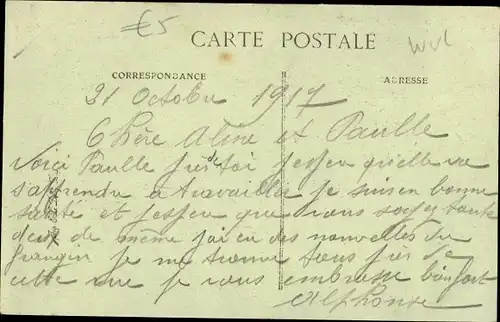 €5
CARTE POSTALE
WVL
CORRESPONDANCE
ADRESSE
21 Octobre 1917
Chère Aline et Paulle
Voici Paulle près de toi j'espère qu'elle va
s'apprendre à travailler je suis en bonne
santé et j'espère que vous soyez toute
deux de même j'ai eu des nouvelles du
frangin je me trouve tous près de
cette vue je vous embrasse bien fort
Alphonse